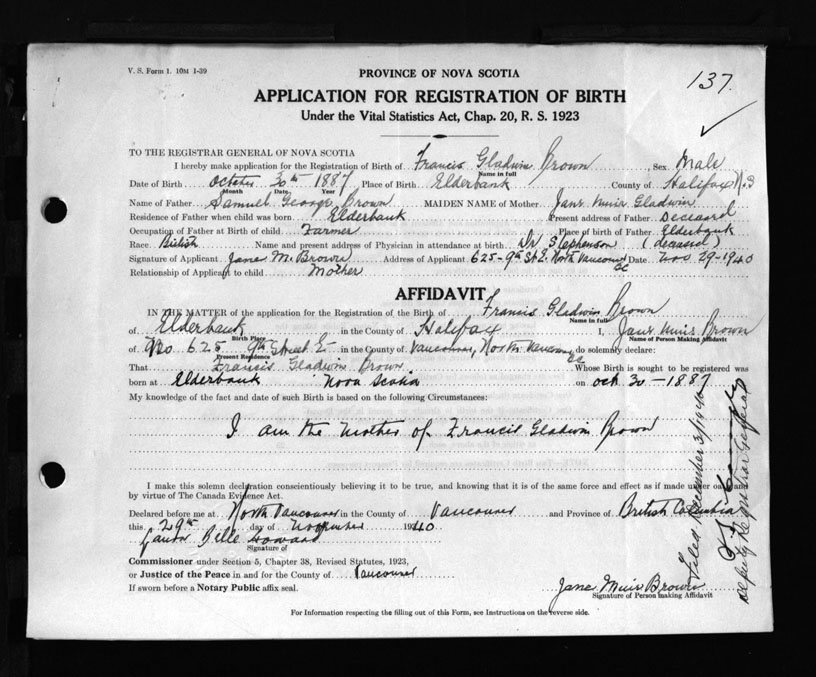 V. S. Form 1. 10M 1-39
137.
PROVINCE OF NOVA SCOTIA
APPLICATION FOR REGISTRATION OF BIRTH
Under the Vital Statistics Act, Chap. 20, R. S. 1923
TO THE REGISTRAR GENERAL OF NOVA SCOTIA
I hereby make application for the Registration of Birth of Francis Gladwin Brown Sex Male
Name in full
Date of Birth October 30th 1887 Place of Birth Elderbank County of Halifax N.S
Month Date Year
Name of Father Samuel George Brown MAIDEN NAME of Mother Jane Muir Gladwin
Residence of Father when child was born Elderbank Present address of Father Deceased
Occupation of Father at Birth of Child Farmer Place of Birth of Father Elderbank
Race British Name and present address of Physician in attendance at birth Dr Stephenson (deceased)
Signature of Applicant Jane M. Brown Address of Applicant 625-9th St E. North Vancouver BC Date Nov 29-1940
Relationship of Applicant to child Mother
AFFIDAVIT
IN THE MATTER of the application for the Registration of the Birth of Francis Gladwin Brown
Name in full
of Elderbank in the County of Halifax I, Jane Muir Brown
Birth Place Name of Person Making Affidavit
of No 625 9th Street E in the County of Vancouver, North Vancouver BC do solemnly declare:
Present Residence
That Francis Gladwin Brown Whose Birth is sought to be registered was
born at Elderbank Nova Scotia on Oct 30-1887
My knowledge of the fact and date of such Birth is based on the following Circumstances:
I am the Mother of Francis Gladwin Brown
I make this solemn declaration conscientiously believing it to be true, and knowing that it is of the same force and effect as if made under oath and
by virtue of The Canada Evidence Act.
Declared before me at North Vancouver in the County of Vancouver and Province of British Columbia
this 29th day of November 1940
Belle Howard
Signature of
Commissioner under Section 5, Chapter 38, Revised Statutes, 1923,
or Justice of the Peace in and for the County of Vancouver
If sworn before a Notary Public affix seal.
Jane Muir Brown
Signature of Person making Affidavit
For Information respecting the filling out of this Form, see Instructions on the reverse side.
Filed December 3/1940
Deputy Registrar General